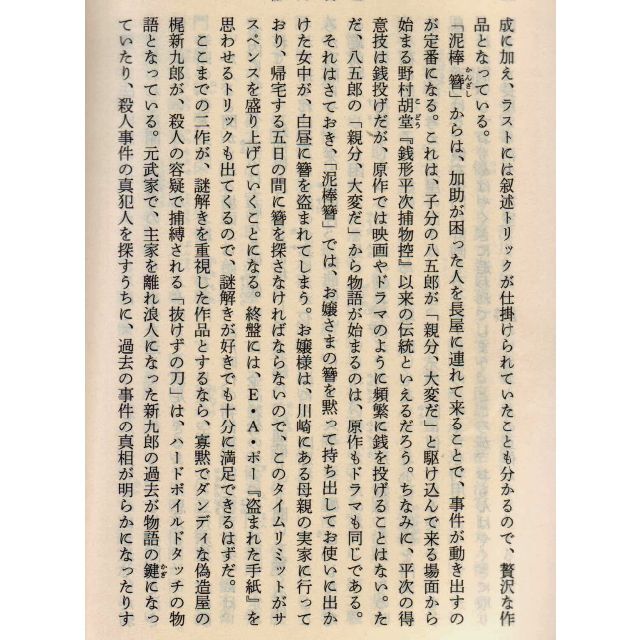 成に加え、ラストには叙述トリックが仕掛けられていたことも分かるので、贅沢な作
品となっている。
「泥棒簪」からは、加助が困った人を長屋に連れて来ることで、事件が動き出すの
かんざし
が定番になる。これは、子分の八五郎が「親分、大変だ」と駆け込んで来る場面から
始まる野村胡堂『銭形平次捕物控』以来の伝統といえるだろう。ちなみに、平次の得
こどう
意技は銭投げだが、原作では映画やドラマのように頻繁に銭を投げることはない。た
だ、八五郎の「親分、大変だ」から物語が始まるのは、原作もドラマも同じである。
それはさておき、「泥棒簪」では、お嬢さまの簪を黙って持ち出してお使いに出か
けた女中が、白昼に簪を盗まれてしまう。お嬢様は、川崎にある母親の実家に行って
おり、帰宅する五日の間に簪を探さなければならないので、このタイムリミットがサ
スペンスを盛り上げていくことになる。終盤には、E・A・ポー『盗まれた手紙』を
思わせるトリックも出てくるので、謎解きが好きでも十分に満足できるはずだ。
ここまでの二作が、謎解きを重視した作品とするなら、寡黙でダンディな偽造屋の
梶新九郎が、殺人の容疑で捕縛される「抜けずの刀」は、ハードボイルドタッチの物
語となっている。元武家で、主家を離れ浪人になった新九郎の過去が物語の鍵になっ
かぎ
ていたり、殺人事件の真犯人を探すうちに、過去の事件の真相が明らかになったりす